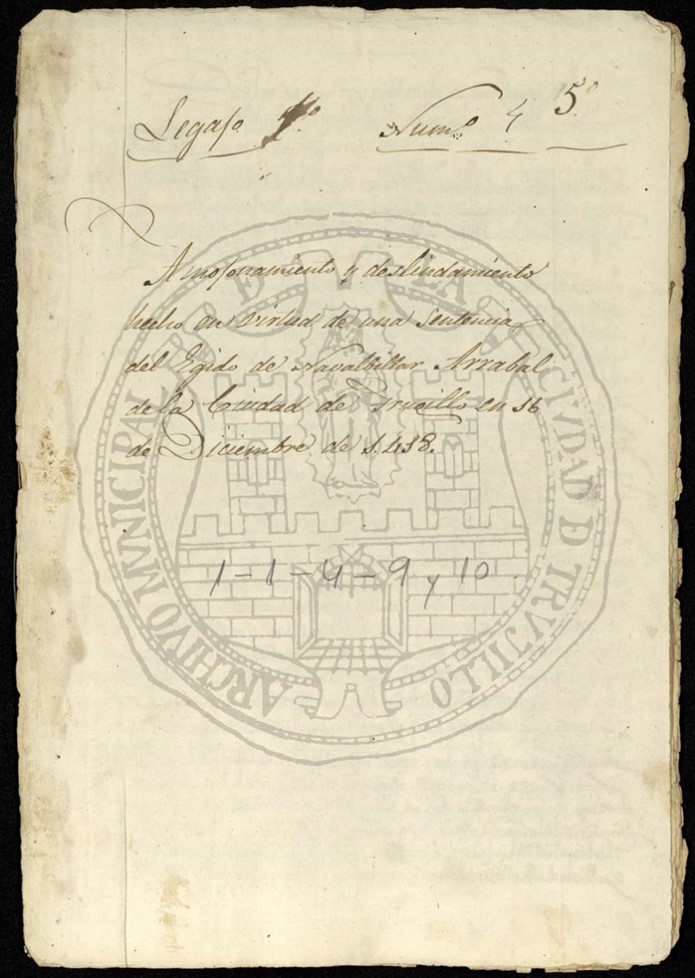 Legajo 1º Numº 4 5º
Amojonamiento y deslindamiento
hecho en virtud de una Sentencia
del Egido de Navalbillar Arrabal
de la Ciudad de Trucillo en 16
de Diciembre de 1.438.
1-1-4-9 y 10
ARCHIVO MVNICIPAL DE LA CIVDAD D TRVJILLO